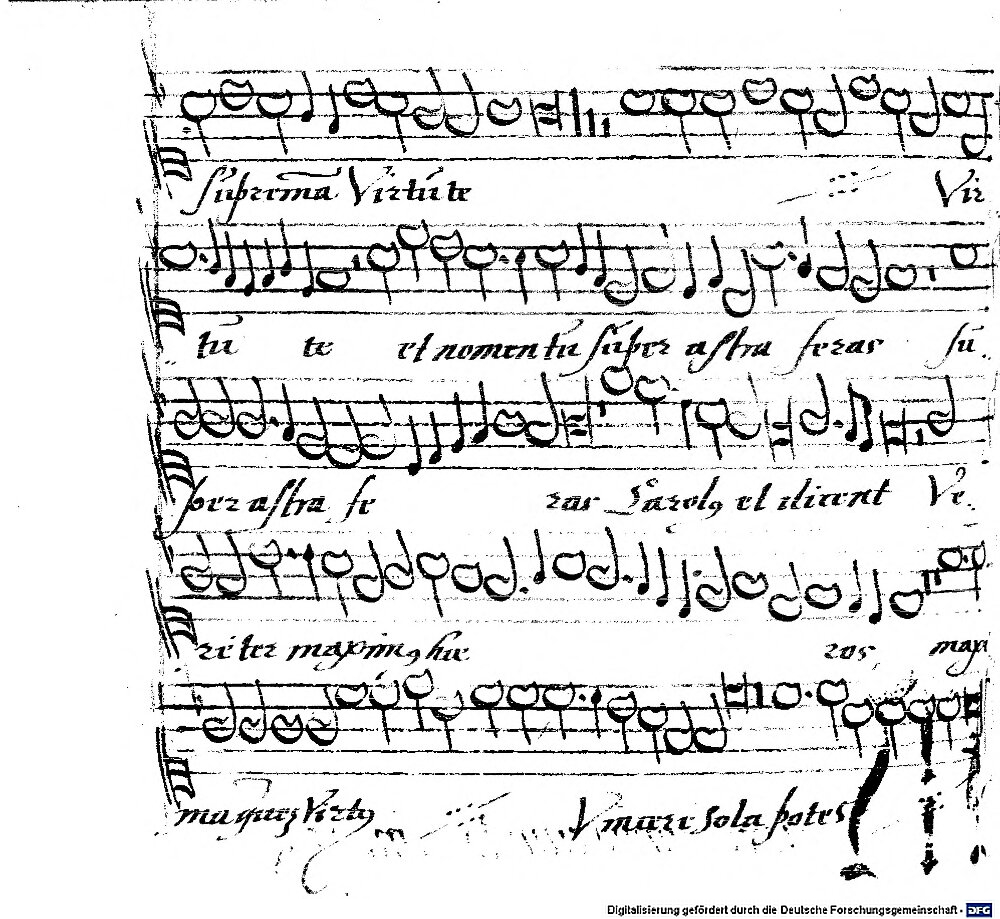 suprema Virtute Vir
tu te et nomen tu super astra feras su
per astra fe ras Carolꝯ et dicent Ve
re ter maximꝯ hie ros max
Virtꝯ sola potest
Digitalisierung gefördert durch die Deutsche Forschungsgemeinschaft - DFG